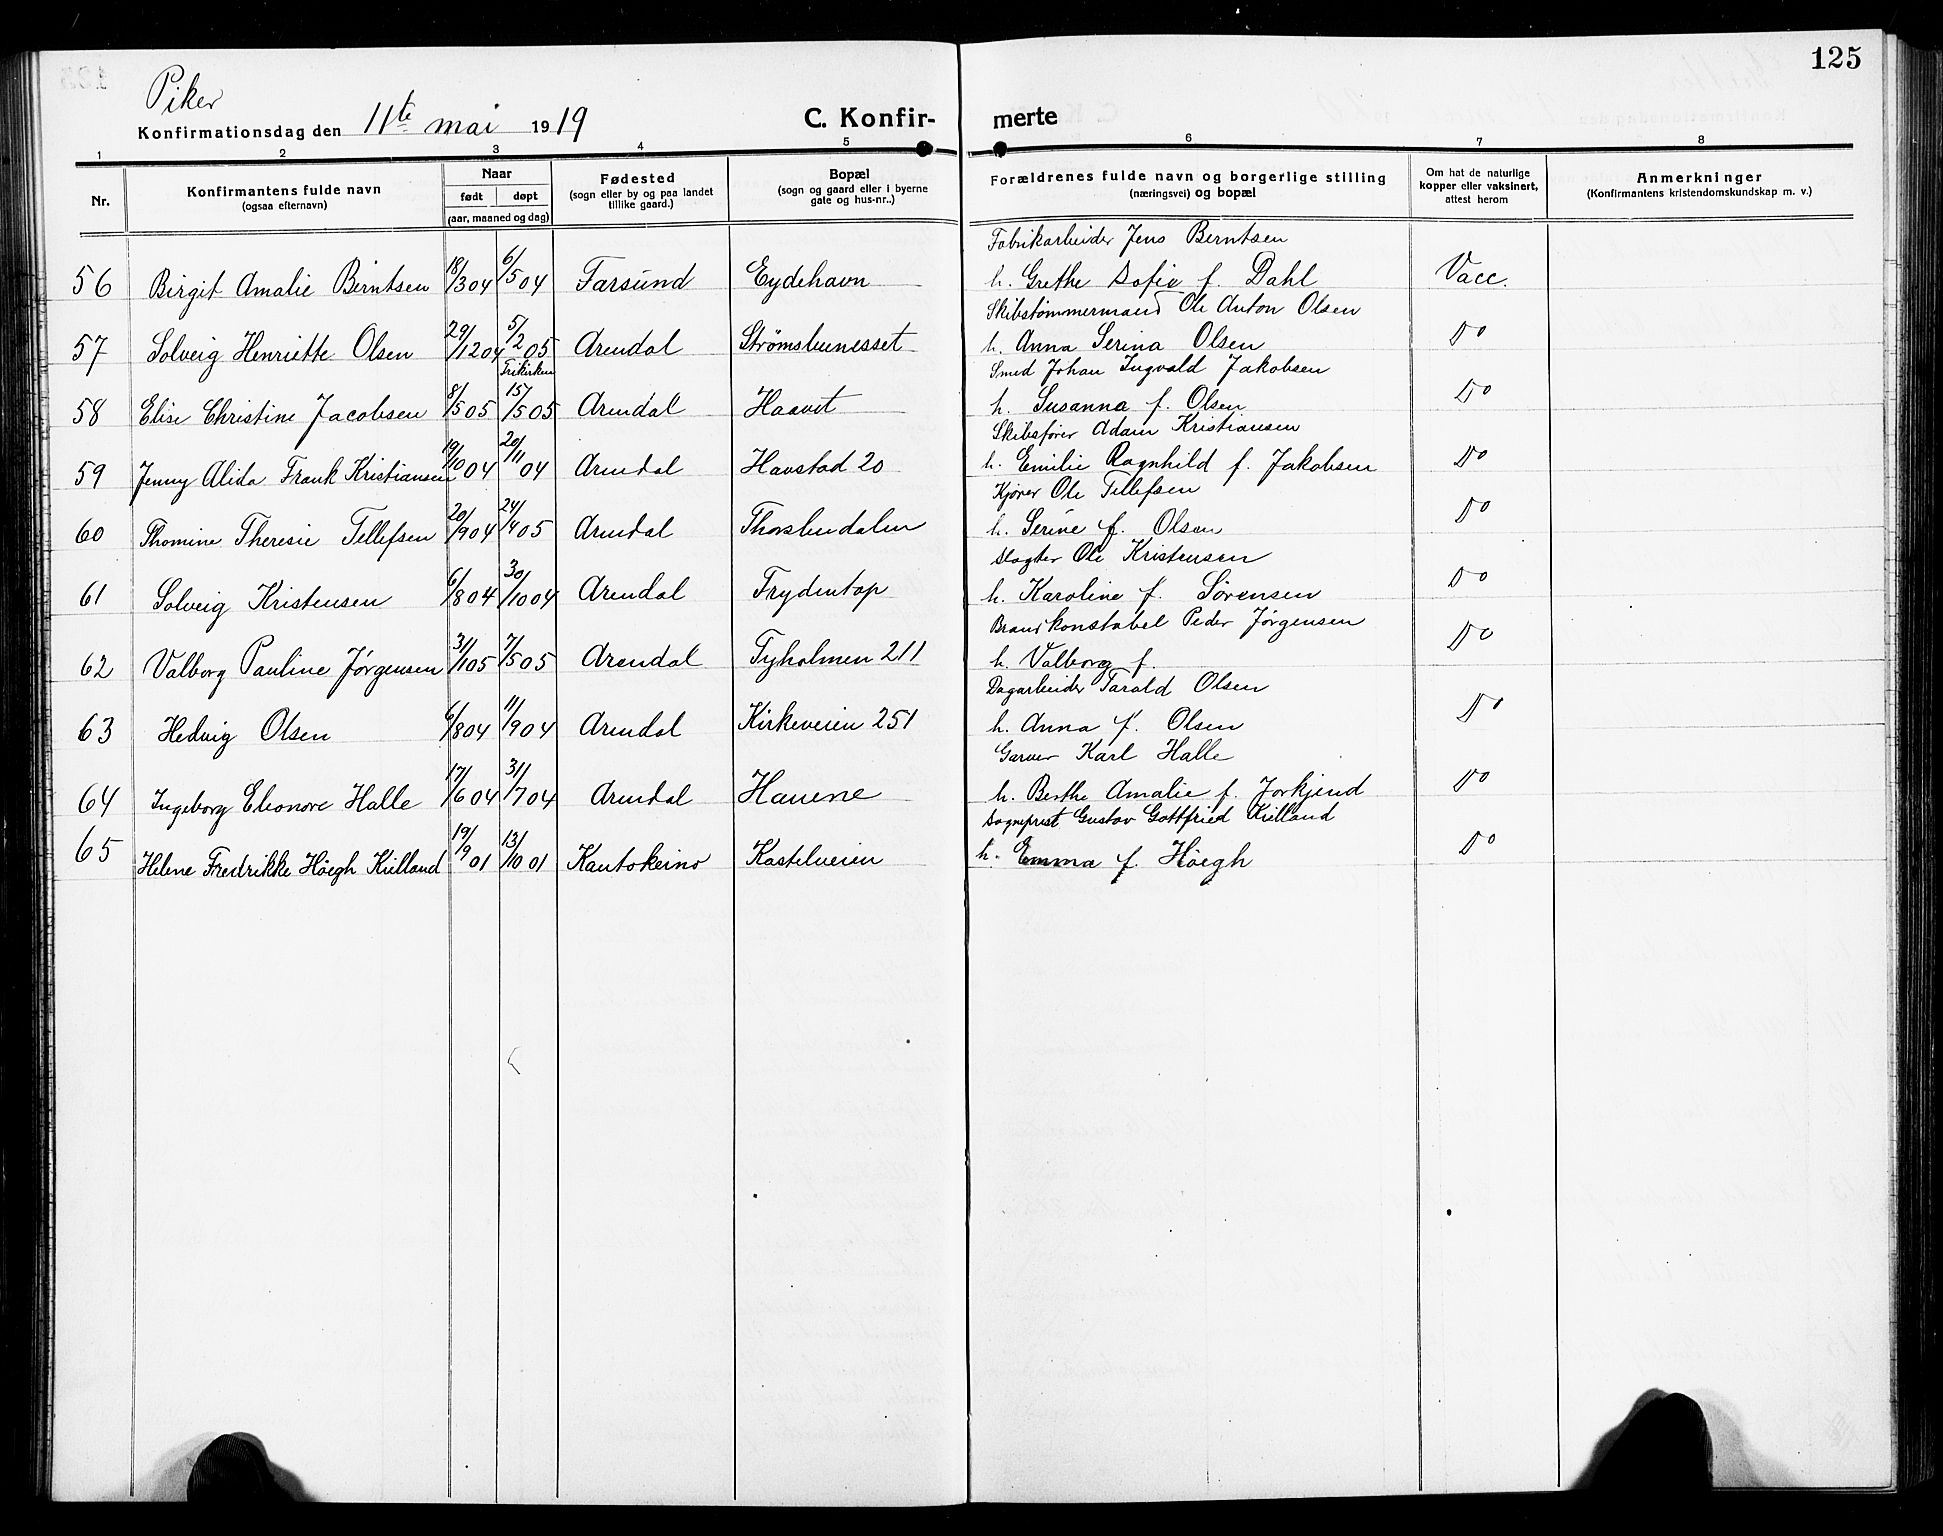 125
Piker
Konfirmationsdag den 11te mai 1919 C. Konfir- merte
1 2 3 4 5 6 7 8
Nr.
Konfirmantens fulde navn
(ogsaa efternavn)
Naar
født døpt
(aar, maaned og dag)
Fødested
(sogn eller by og paa landet
tillike gaard.)
Bopæl
(sogn og gaard eller i byerne
gate og hus-nr..)
Forældrenes fulde navn og borgerlige stilling
(næringsvei) og bopæl
Om hat de naturlige
kopper eller vaksinert,
attest herom
Anmerkninger
(Konfirmantens kristendomskundskap m. v.)
Fabrikarbeider Jens Berntsen
56 Birgit Amalie Berntsen 18/3 04 6/5 04 Farsund Eydehavn h. Grethe Sofie f. Dahl Vacc.
Skibstømmermand Ole Anton Olsen
57 Solveig Henriette Olsen 29/12 04 5/2 05 Arendal Strømsbunesset h. Anna Serina Olsen Do
Frikirken
Smed Johan Ingvald Jakobsen
58 Elise Christine Jacobsen 8/5 05 15/5 05 Arendal Haavet h. Susanna f. Olsen Do
Skibsfører Adam Kristiansen
59 Jenny Alida Frank Kristiansen 19/10 04 20/11 04 Arendal Havstad 20 h. Emilie Ragnhild f. Jakobsen Do
Kjører Ole Tellefsen
60 Thomine Theresie Tellefsen 20/9 04 24/4 05 Arendal Thorsbudalen h. Serine f. Olsen Do
Slagter Ole Kristensen
61 Solveig Kristensen 6/8 04 30/10 04 Arendal Frydentop h. Karoline f. Sørensen Do
Brandkonstabel Peder Jørgensen
62 Valborg Pauline Jørgensen 31/1 05 7/5 05 Arendal Tyholmen 211 h. Valborg f. Do
Dagarbeider Tarald Olsen
63 Hedvig Olsen 6/8 04 11/9 04 Arendal Kirkeveien 251 h. Anna f. Olsen Do
Garver Karl Halle
64 Ingeborg Eleonore Halle 17/6 04 31/7 04 Arendal Hauene h. Berthe Amalie f. Jorkjend Do
Sogneprest Gustav Gottfried Kielland
65 Helene Fredrikke Höegh Kielland 19/9 01 13/10 01 Kautokeino Kastelveien h. Emma f. Höegh Do